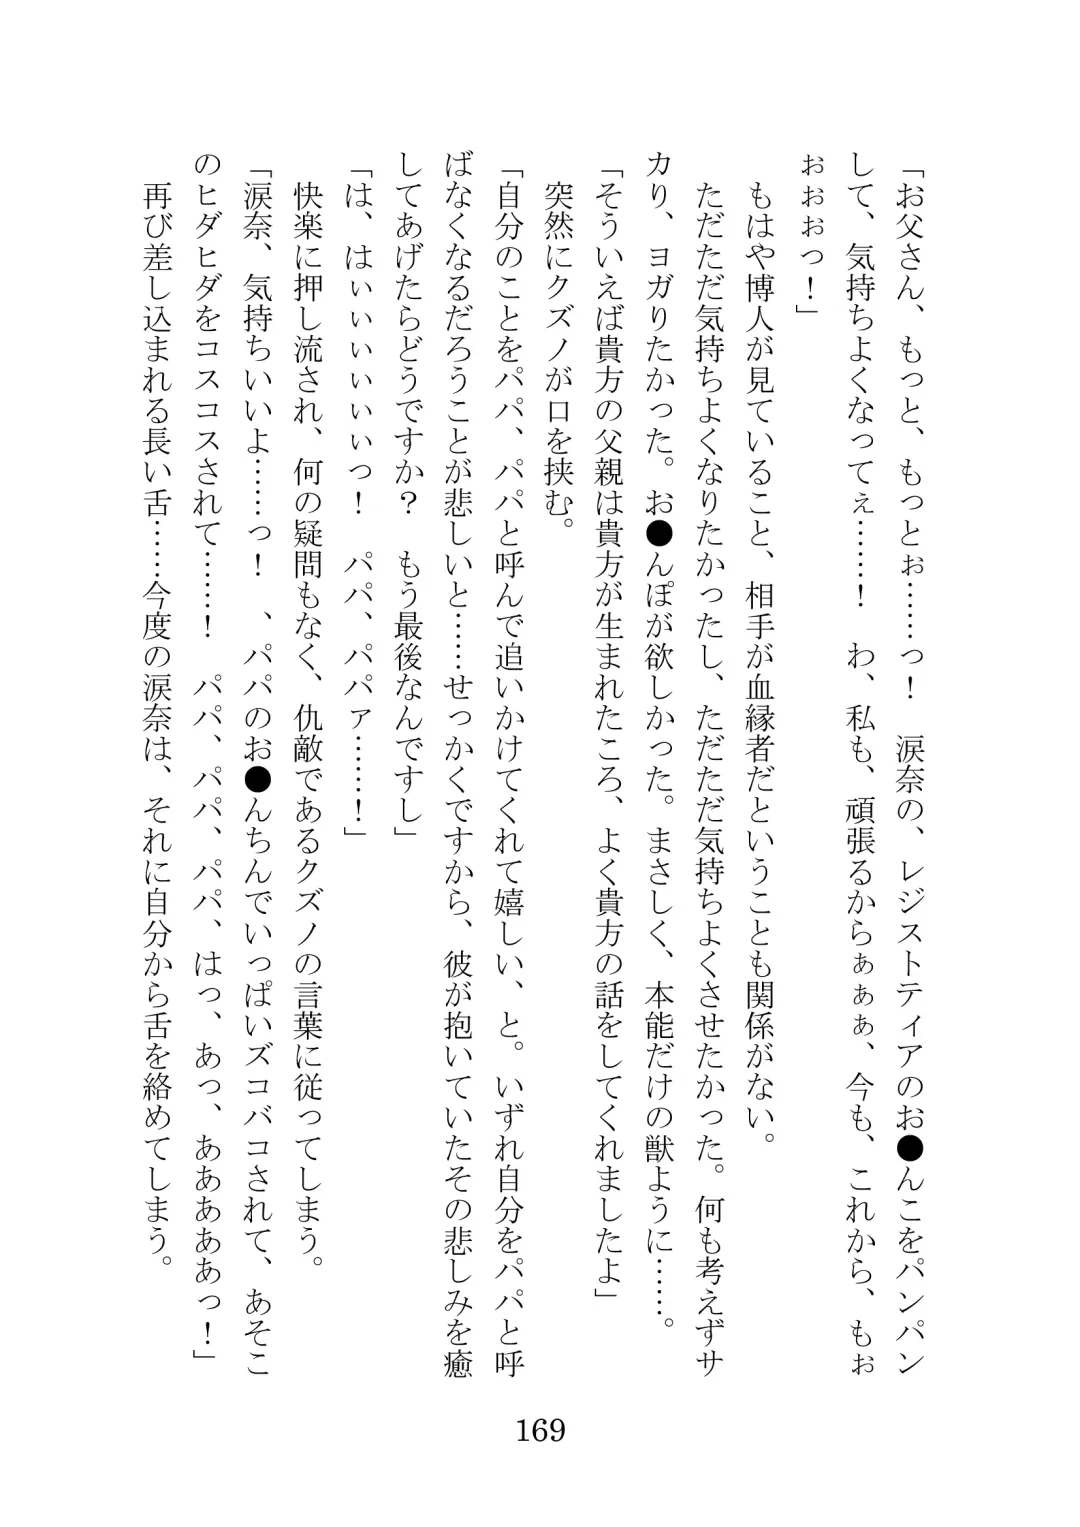 「お父さん、もっと、もっとぉ……っ！　涙奈の、レジストティアのお●んこをパンパン
して、気持ちよくなってぇ……！　わ、私も、頑張るからぁぁぁ、今も、これから、もぉ
ぉぉぉっ！」
もはや博人が見ていること、相手が血縁者だということも関係がない。
ただただ気持ちよくなりたかったし、ただただ気持ちよくさせたかった。何も考えずサ
カり、ヨガりたかった。お●んぽが欲しかった。まさしく、本能だけの獣ように……。
「そういえば貴方の父親は貴方が生まれたころ、よく貴方の話をしてくれましたよ」
突然にクズノが口を挟む。
「自分のことをパパ、パパと呼んで追いかけてくれて嬉しい、と。いずれ自分をパパと呼
ばなくなるだろうことが悲しいと……せっかくですから、彼が抱いていたその悲しみを癒
してあげたらどうですか？　もう最後なんですし」
「は、はぃぃぃぃぃっ！　パパ、パパァ……！」
快楽に押し流され、何の疑問もなく、仇敵であるクズノの言葉に従ってしまう。
「涙奈、気持ちいいよ……っ！　、パパのお●んちんでいっぱいズコバコされて、あそこ
のヒダヒダをコスコスされて……！　パパ、パパ、パパ、はっ、あっ、あああああっ！」
再び差し込まれる長い舌……今度の涙奈は、それに自分から舌を絡めてしまう。
169